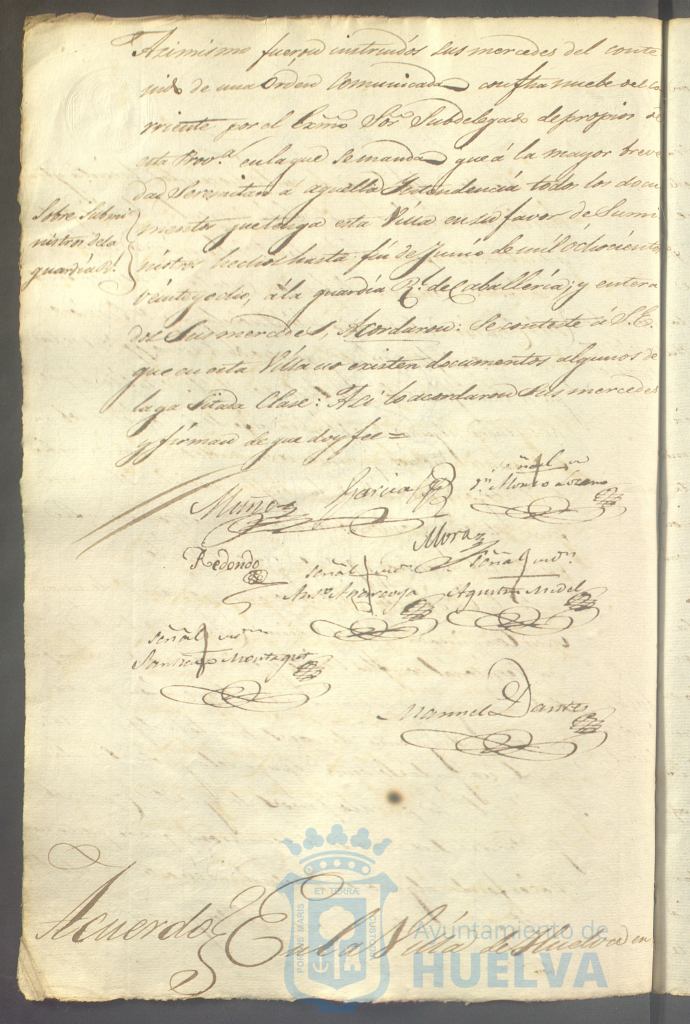 Asimismo fueron instruidos sus mercedes del conte
nido de una orden comunicada con fha nuebe del co
rriente por el Exmo Sor Subdelegado de propios de
esta Prova. en la que se manda que á la mayor breve
dad se remitan a aquella Yntendencia todos los docu
Sobre submi
nistros de la
guardia Rl.
mentos que tenga esta Villa en su favor de Sumi
nistros hechos hasta fin de Junio de mil ochocientos
veinte y ocho, á la guardia Rl. de Caballeria; y entera
dos sus mercedes, Acordaron: Se conteste á S.E.
que en esta Villa no existen documentos algunos de
la ga sitada Clase: Asi lo acordaron sus mercedes
y firman de que doy fee=
Muñoz Garcia señal
Moreno
Redondo Mora
señal señal
Agustin Midel
señal
Manuel
Acuerdo En la Villa de Huelva en
PORTUS MARIS ET TERRÆ CUSTODIA
Ayuntamiento de
HUELVA